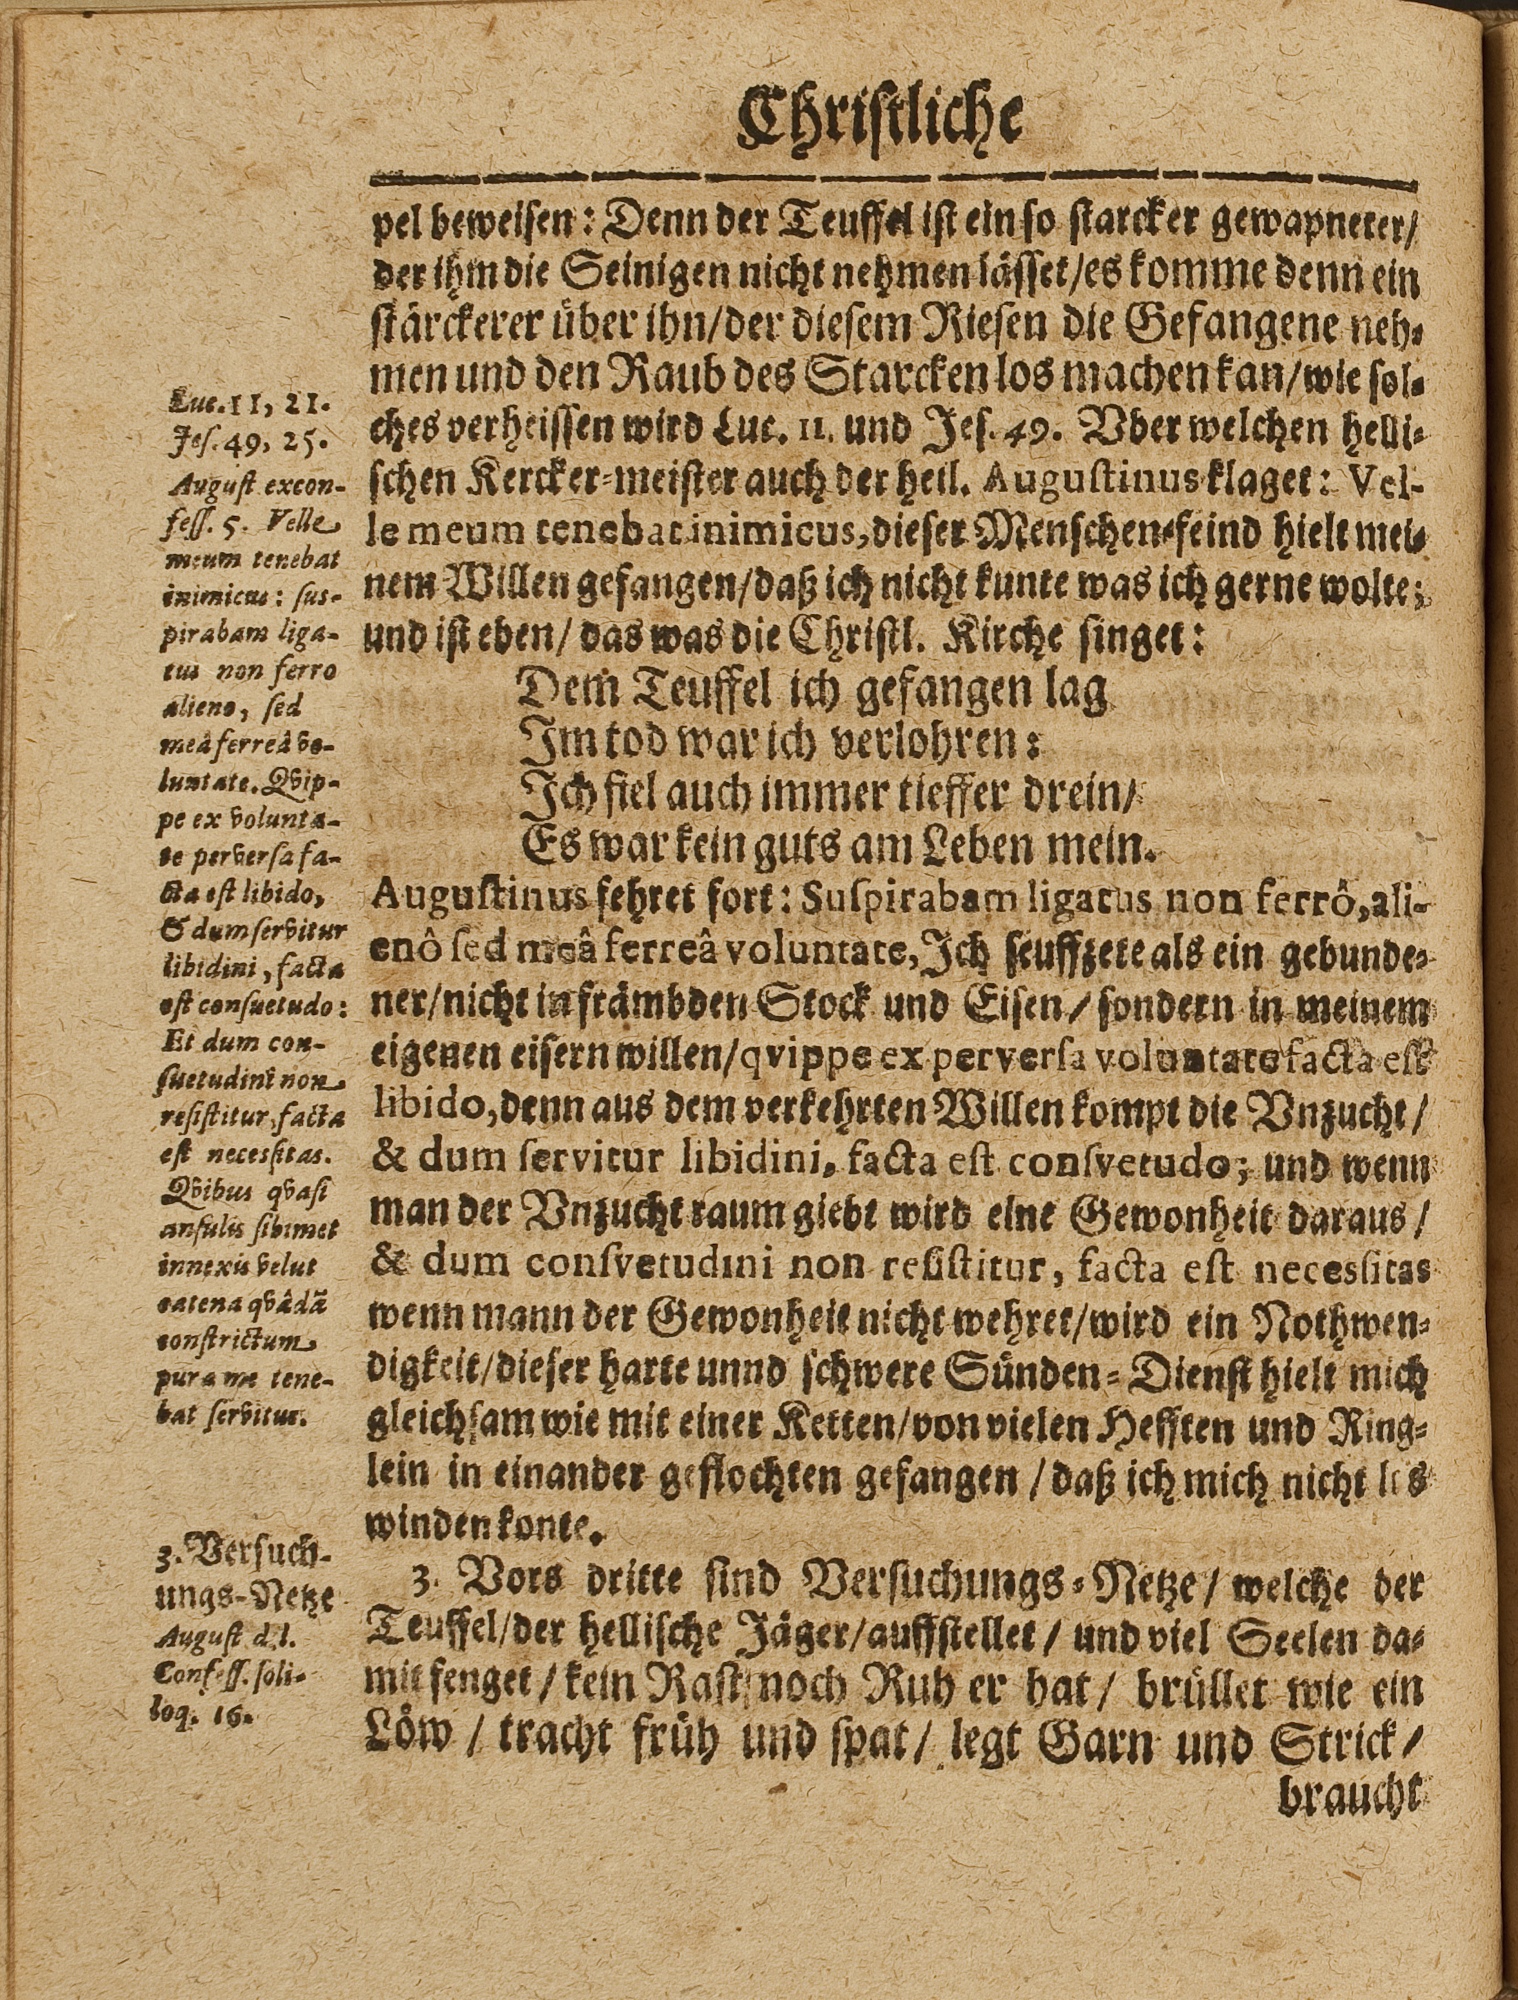 Christliche
pel beweisen: Denn der Teuffel ist ein so starcker gewapneter/
der ihm die Seinigen nicht nehmen lässet/es komme denn ein
stärckerer über ihn/der diesem Riesen die Gefangene neh-
men und den Raub des Starcken los machen kan/wie sol-
ches verheissen wird Luc. 11. und Jes. 49. Vber welchen helli-
schen Kercker-meister auch der heil. Augustinus klaget: Vel-
le meum tenebat inimicus, dieser Menschen-feind hielt mei-
nem Willen gefangen/daß ich nicht kunte was ich gerne wolte;
und ist eben/ das was die Christl. Kirche singet:
Dem Teuffel ich gefangen lag
Im tod war ich verlohren:
Ich fiel auch immer tieffer drein/
Es war kein guts am Leben mein.
Augustinus fehret fort: Suspirabam ligatus non ferrô, ali-
enô sed meâ ferreâ voluntate, Ich seuffzete als ein gebunde-
ner/nicht in främbden Stock und Eisen/ sondern in meinem
eigenen eisern willen/qvippe ex perversa voluntate facta est
libido, denn aus dem verkehrten Willen kompt die Vnzucht/
& dum servitur libidini, facta est consvetudo; und wenn
man der Vnzucht raum giebt wird eine Gewonheit daraus/
& dum consvetudini non resistitur, facta est necessitas
wenn mann der Gewonheit nicht wehret/wird ein Nothwen-
digkeit/dieser harte unnd schwere Sünden-Dienst hielt mich
gleichsam wie mit einer Ketten/von vielen Hefften und Ring-
lein in einander geflochten gefangen/daß ich mich nicht los
winden konte.
3. Vors dritte sind Versuchungs-Netze/ welche der
Teuffel/der hellische Jäger/auffstellet/ und viel Seelen da-
mit fenget/ kein Rast noch Ruh er hat/ brüllet wie ein
Löw/ tracht früh und spat/ legt Garn und Strick/
braucht
Luc. 11, 21.
Jes. 49, 25.
August ex con-
fess. 5. Velle
meum tenebat
inimicus: sus-
pirabam liga-
tus non ferro
alieno, sed
meâ ferreâ vo-
luntate. Qvip-
pe ex volunta-
te perversa fa-
cta est libido,
& dum servitur
libidini, facta
est consuetudo:
Et dum con-
suetudini non
resistitur, facta
est necessitas.
Qvibus qvasi
ansulis sibimet
innexis velut
catena qvâdã
constrictum
pura me tene-
bat servitus.
3. Versuch-
ungs-Netze
August d. l.
Confess. soli-
loq. 16.